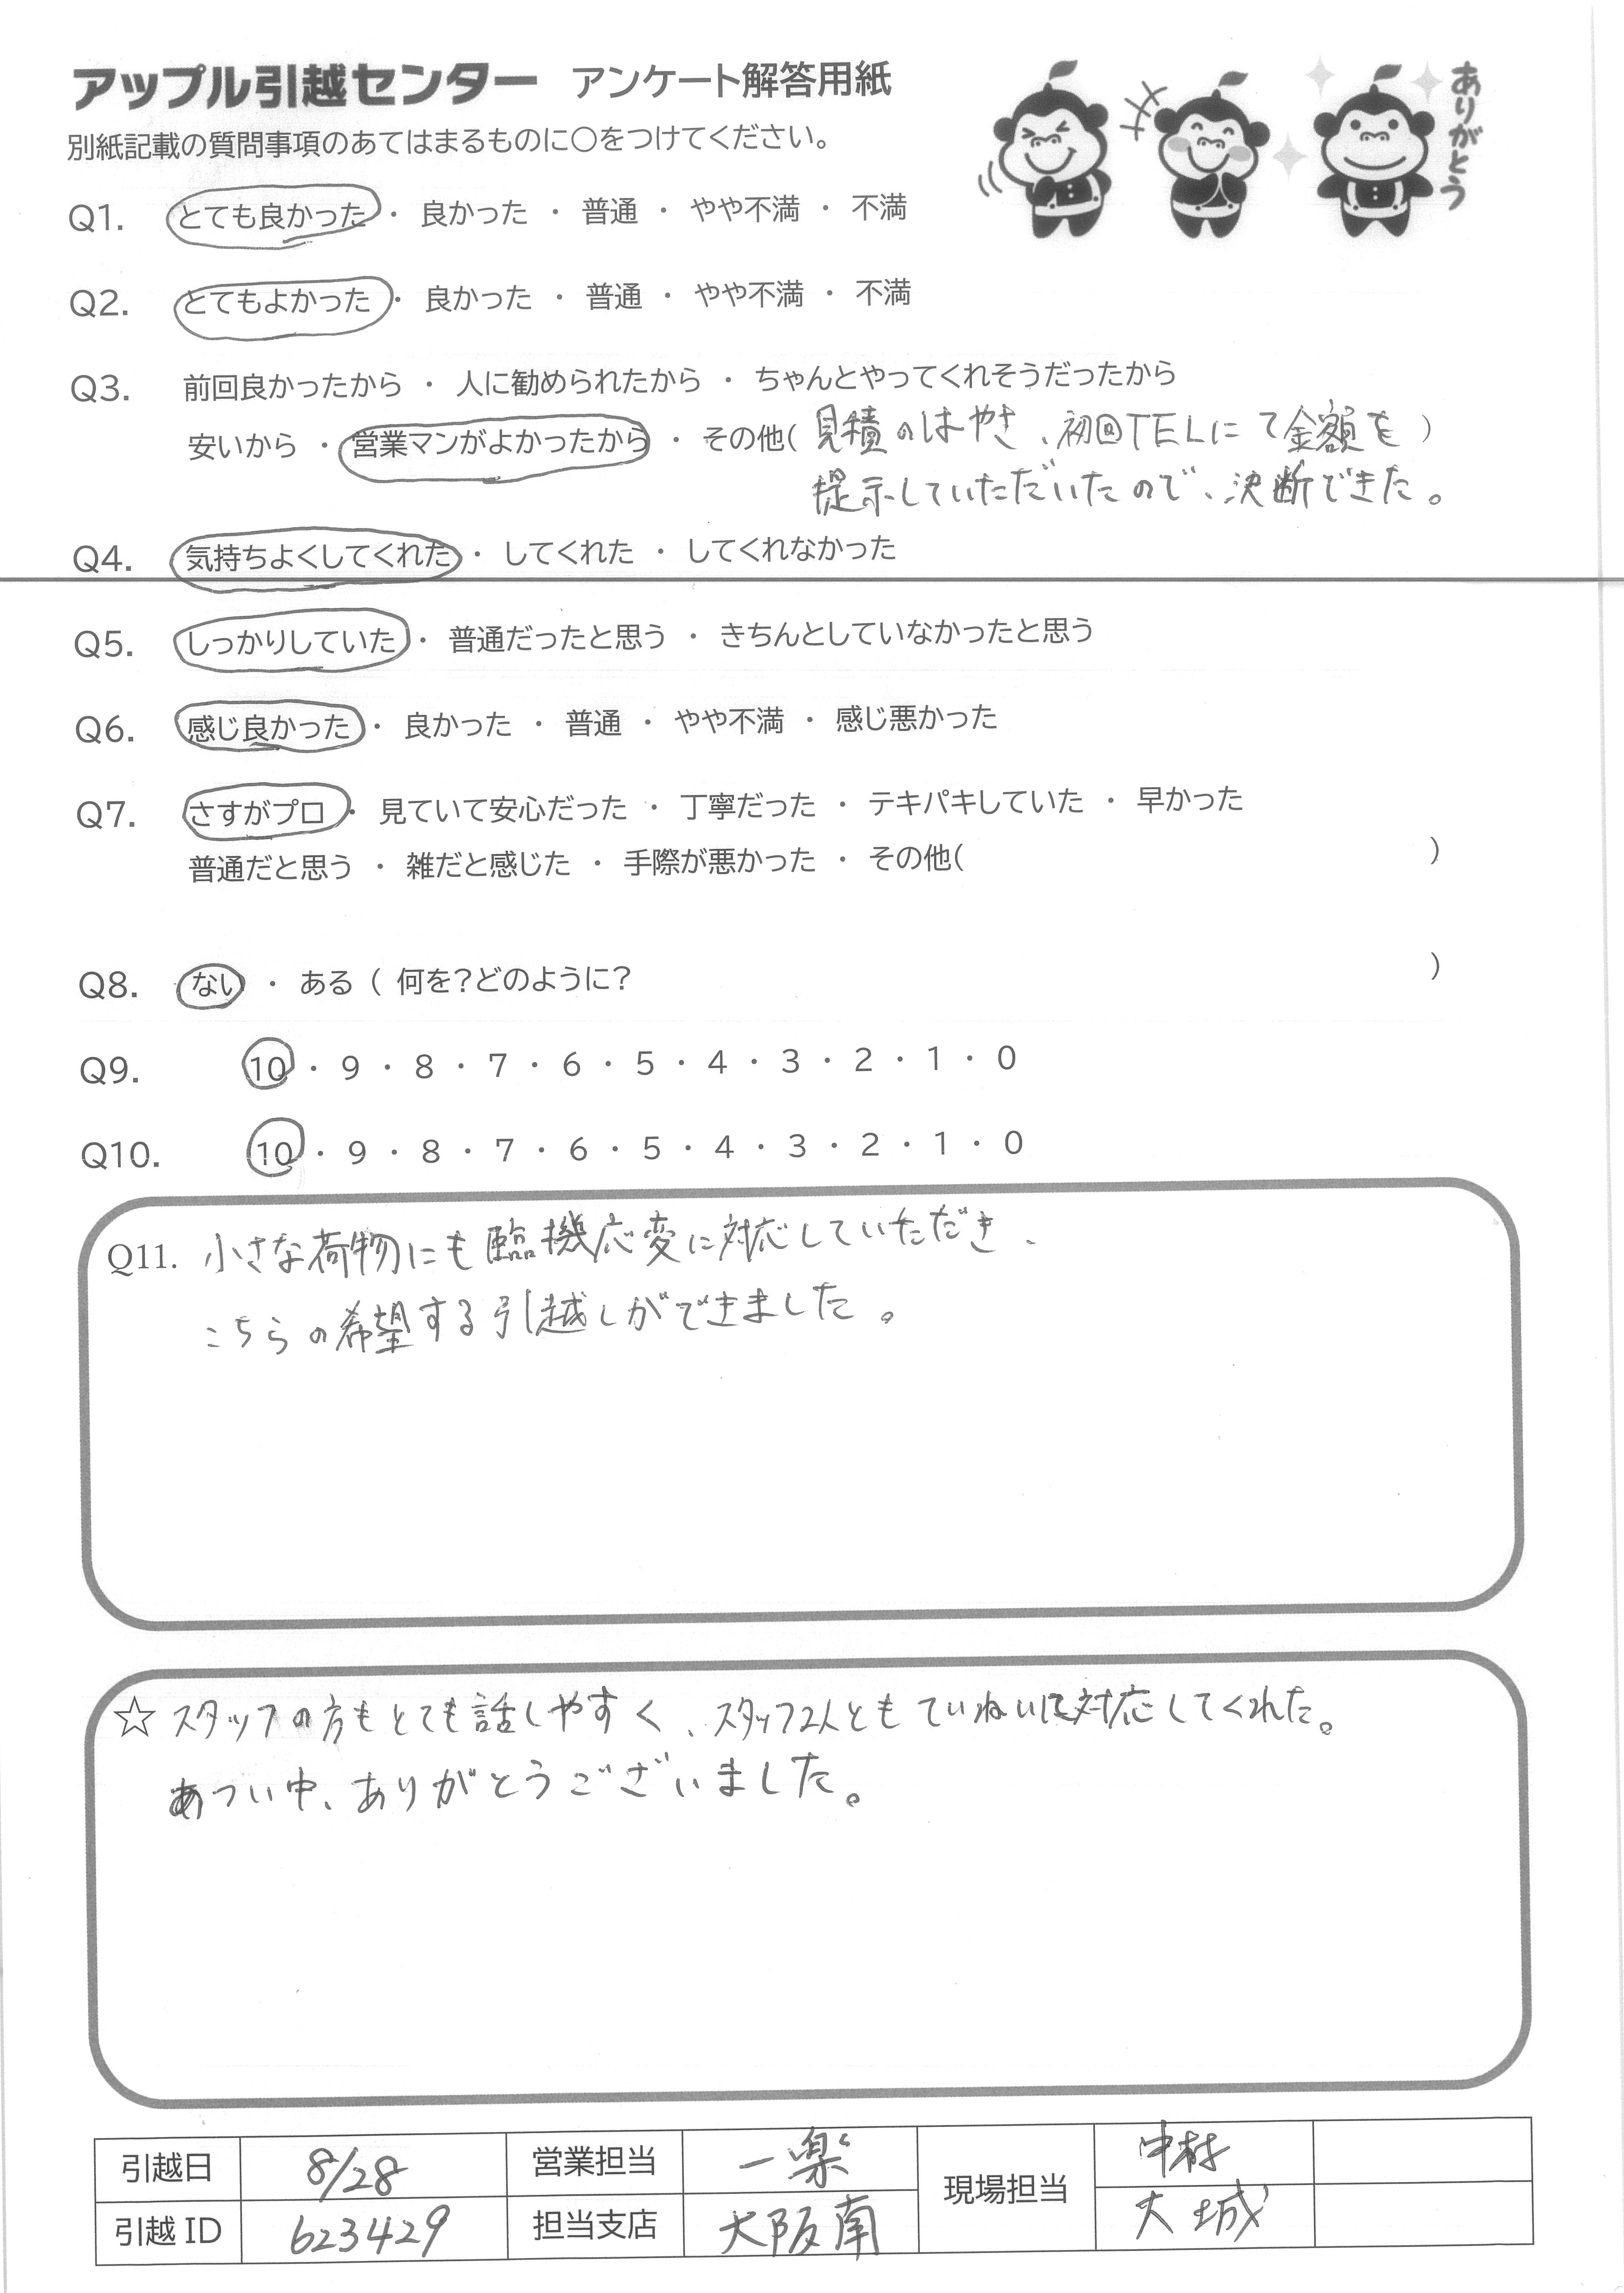 アップル引越センター アンケート解答用紙
ありがとう
別紙記載の質問事項のあてはまるものに○をつけてください。
Q1. とても良かった ・ 良かった ・ 普通 ・ やや不満 ・ 不満
Q2. とてもよかった ・ 良かった ・ 普通 ・ やや不満 ・ 不満
Q3. 前回良かったから ・ 人に勧められたから ・ ちゃんとやってくれそうだったから
安いから ・ 営業マンがよかったから ・ その他( 見積のはやさ、初回TELにて金額を )
提示していただいたので、決断できた。
Q4. 気持ちよくしてくれた ・ してくれた ・ してくれなかった
Q5. しっかりしていた ・ 普通だったと思う ・ きちんとしていなかったと思う
Q6. 感じ良かった ・ 良かった ・ 普通 ・ やや不満 ・ 感じ悪かった
Q7. さすがプロ ・ 見ていて安心だった ・ 丁寧だった ・ テキパキしていた ・ 早かった
普通だと思う ・ 雑だと感じた ・ 手際が悪かった ・ その他( )
Q8. ない ・ ある ( 何を?どのように? )
Q9. 10 ・ 9 ・ 8 ・ 7 ・ 6 ・ 5 ・ 4 ・ 3 ・ 2 ・ 1 ・ 0
Q10. 10 ・ 9 ・ 8 ・ 7 ・ 6 ・ 5 ・ 4 ・ 3 ・ 2 ・ 1 ・ 0
Q11. 小さな荷物にも臨機応変に対応していただき、
こちらの希望する引越しができました。
☆ スタッフの方もとても話しやすく、スタッフ2人ともていねいに対応してくれた。
あつい中、ありがとうございました。
引越日 8/28 営業担当 一楽 現場担当 中村
引越ID 623429 担当支店 大阪南 大城